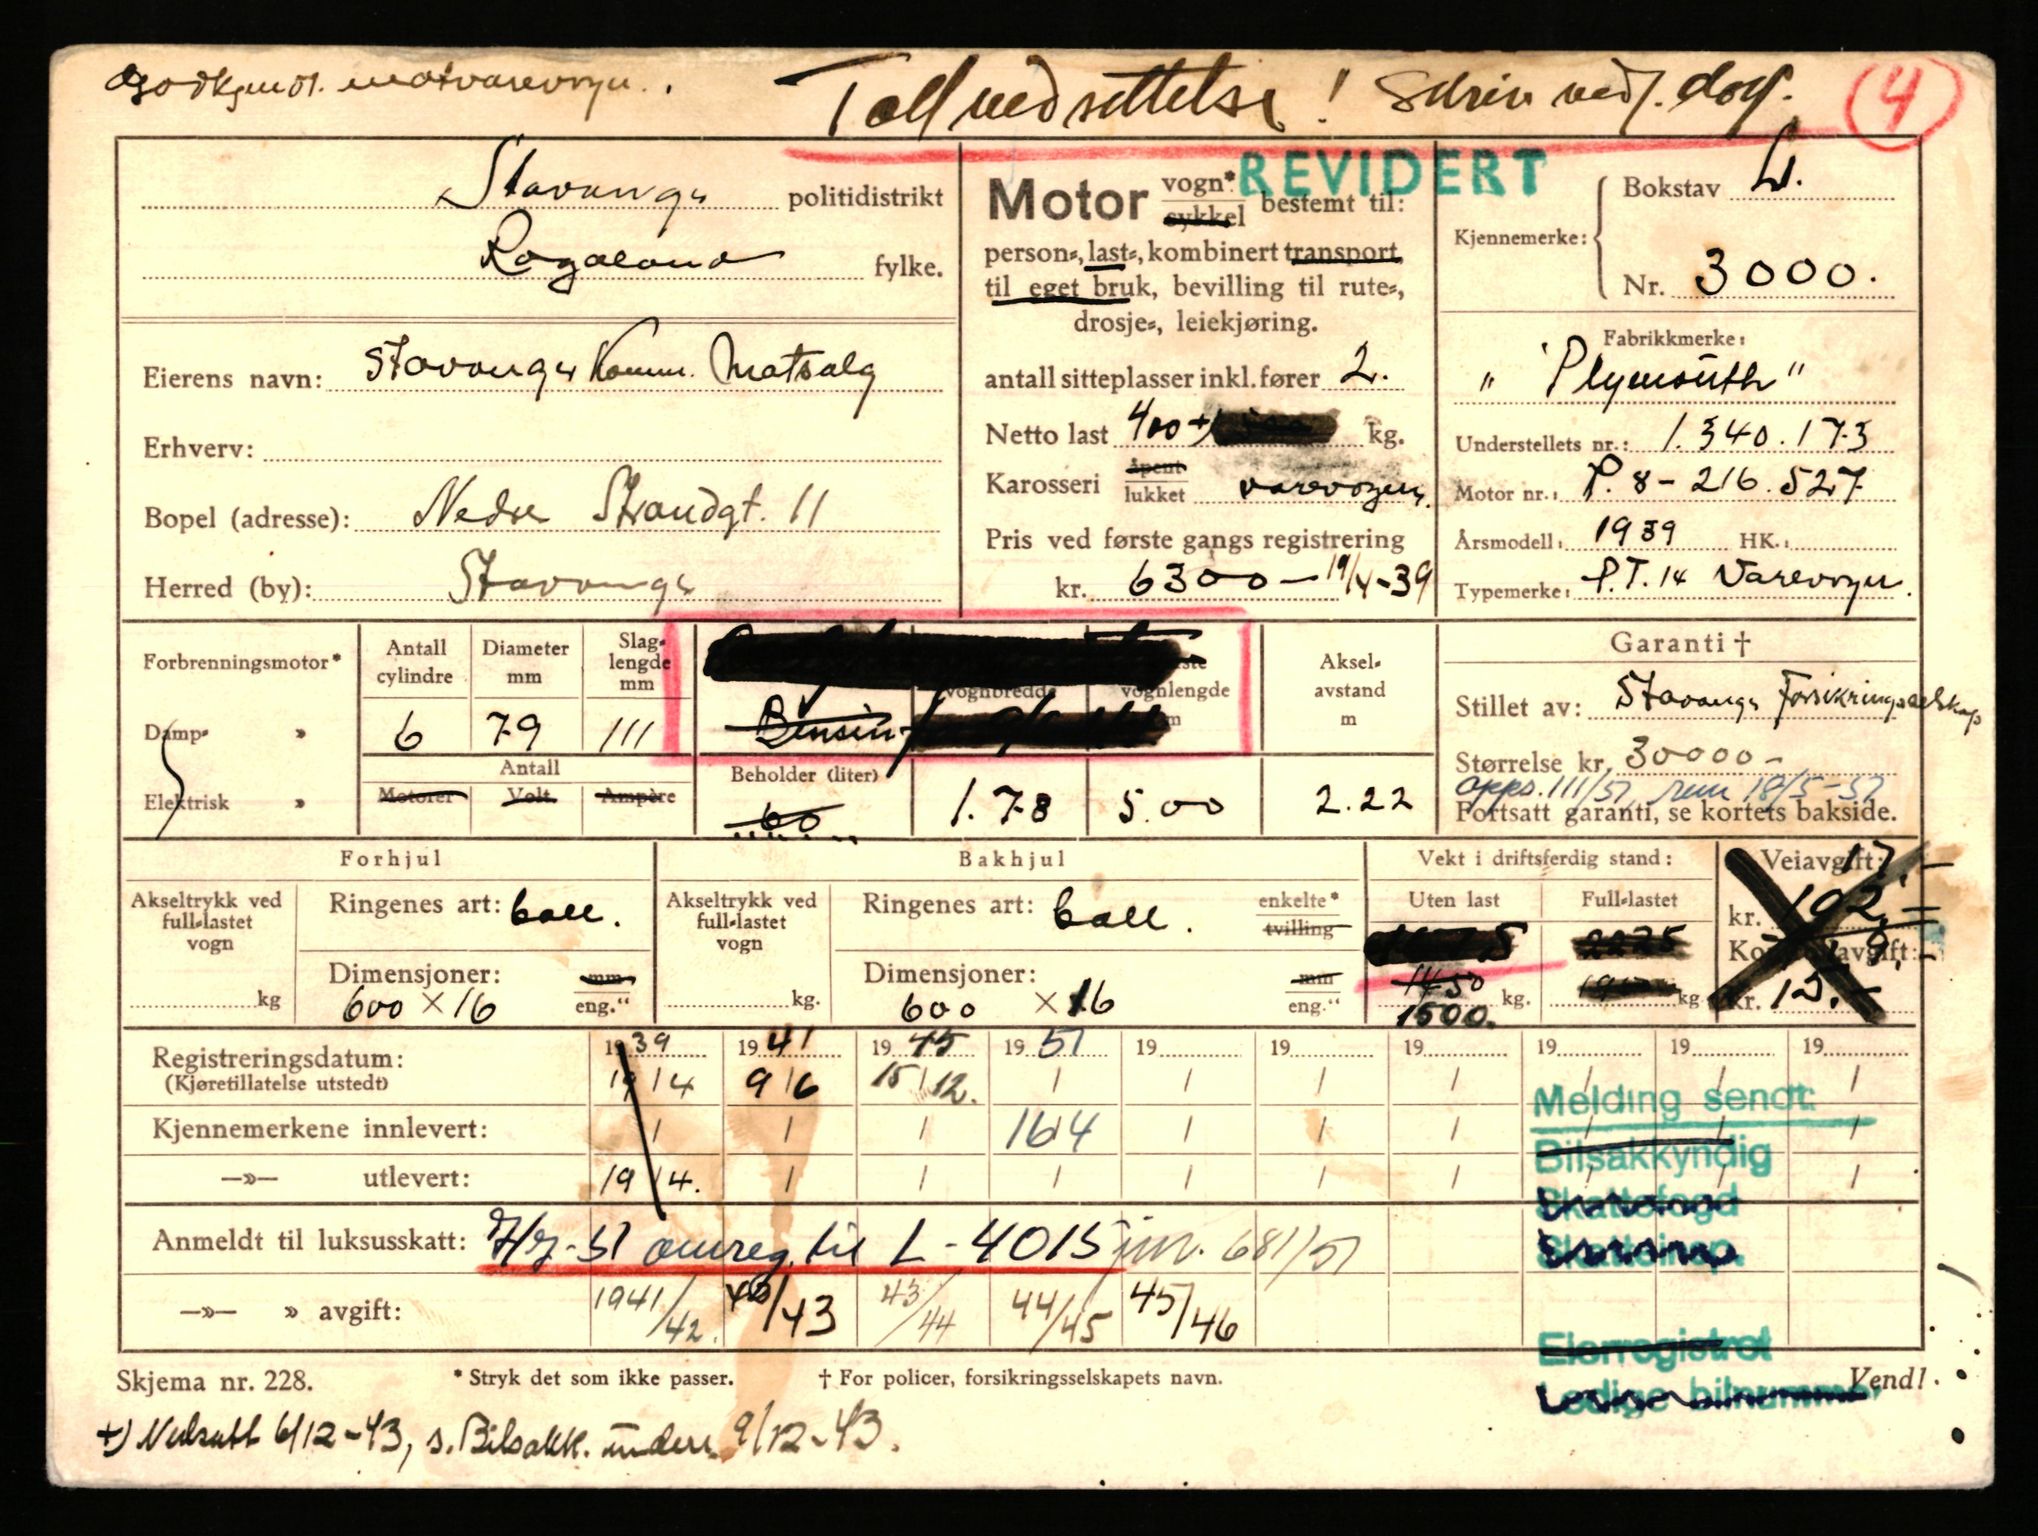 Godkjent matvarevogn.
Toll nedsettelse! Skriv vedl. dog.
4
REVIDERT
Stavanger politidistrikt
Rogaland fylke.
Eierens navn: Stavanger Komm. Matsalg
Erhverv:
Bopel (adresse): Nedre Strandgt. 11
Herred (by): Stavanger
Motor vogn* sykkel bestemt til:
person-, last-, kombinert transport,
til eget bruk, bevilling til rute-,
drosje-, leiekjøring.
antall sitteplasser inkl. fører 2.
Netto last 400 +) kg.
Karosseri åpent lukket varevogn.
Pris ved første gangs registrering
kr. 6300 — 19/4-39
Kjennemerke: Bokstav L.
Nr. 3000.
Fabrikkmerke:
" Plymouth "
Understellets nr.: 1.340.173
Motor nr.: P.8 – 216.527
Årsmodell: 1939 HK.:
Typemerke: P.T. 14 Varevogn.
Forbrenningsmotor* Antall cylindre Diameter mm Slaglengde mm
vognbredde vognlengde m
Akselavstand m
Damp- » 6 79 111 Bensin
Elektrisk » Antall Motorer Volt Ampère
Beholder (liter) 60 1.78 5.00 2.22
Garanti †
Stillet av: Stavanger Forsikringsselskap
Størrelse kr. 30000 –
opps. 111/51, 18/5-51
Fortsatt garanti, se kortets bakside.
Forhjul Bakhjul Vekt i driftsferdig stand: Veiavgift:
Akseltrykk ved full-lastet vogn kg
Ringenes art: ball.
Dimensjoner: mm
600 × 16 eng."
Akseltrykk ved full-lastet vogn kg.
Ringenes art: ball. enkelte* tvilling
Dimensjoner: mm
600 × 16 eng."
Uten last Full-lastet
2225
1450 kg. kg
1500.
17.–
kr. 102.
Kontrollavgift: 9.–
kr. 15.–
Registreringsdatum: 1939 1941 1945 1951 19 19 19 19 19 19
(Kjøretillatelse utstedt) 19/4 9/6 15/12. / / / / / / /
Kjennemerkene innlevert: / / / 16/4 / / / / / /
—»— utlevert: 19/4. / / / / / / / / /
Anmeldt til luksusskatt: omreg. til L - 4015 jnr. 681/51
—»— » avgift: 1941/42. 42/43 43/44 44/45 45/46
Melding sendt:
Bilsakkyndig
Skattefogd
Skatteinsp.
Eierregistret
Ledige bilnummer
Skjema nr. 228. * Stryk det som ikke passer. † For policer, forsikringsselskapets navn. Vend!
+) Nedsatt 6/12-43, s. Bilsakk. 9/12-43.